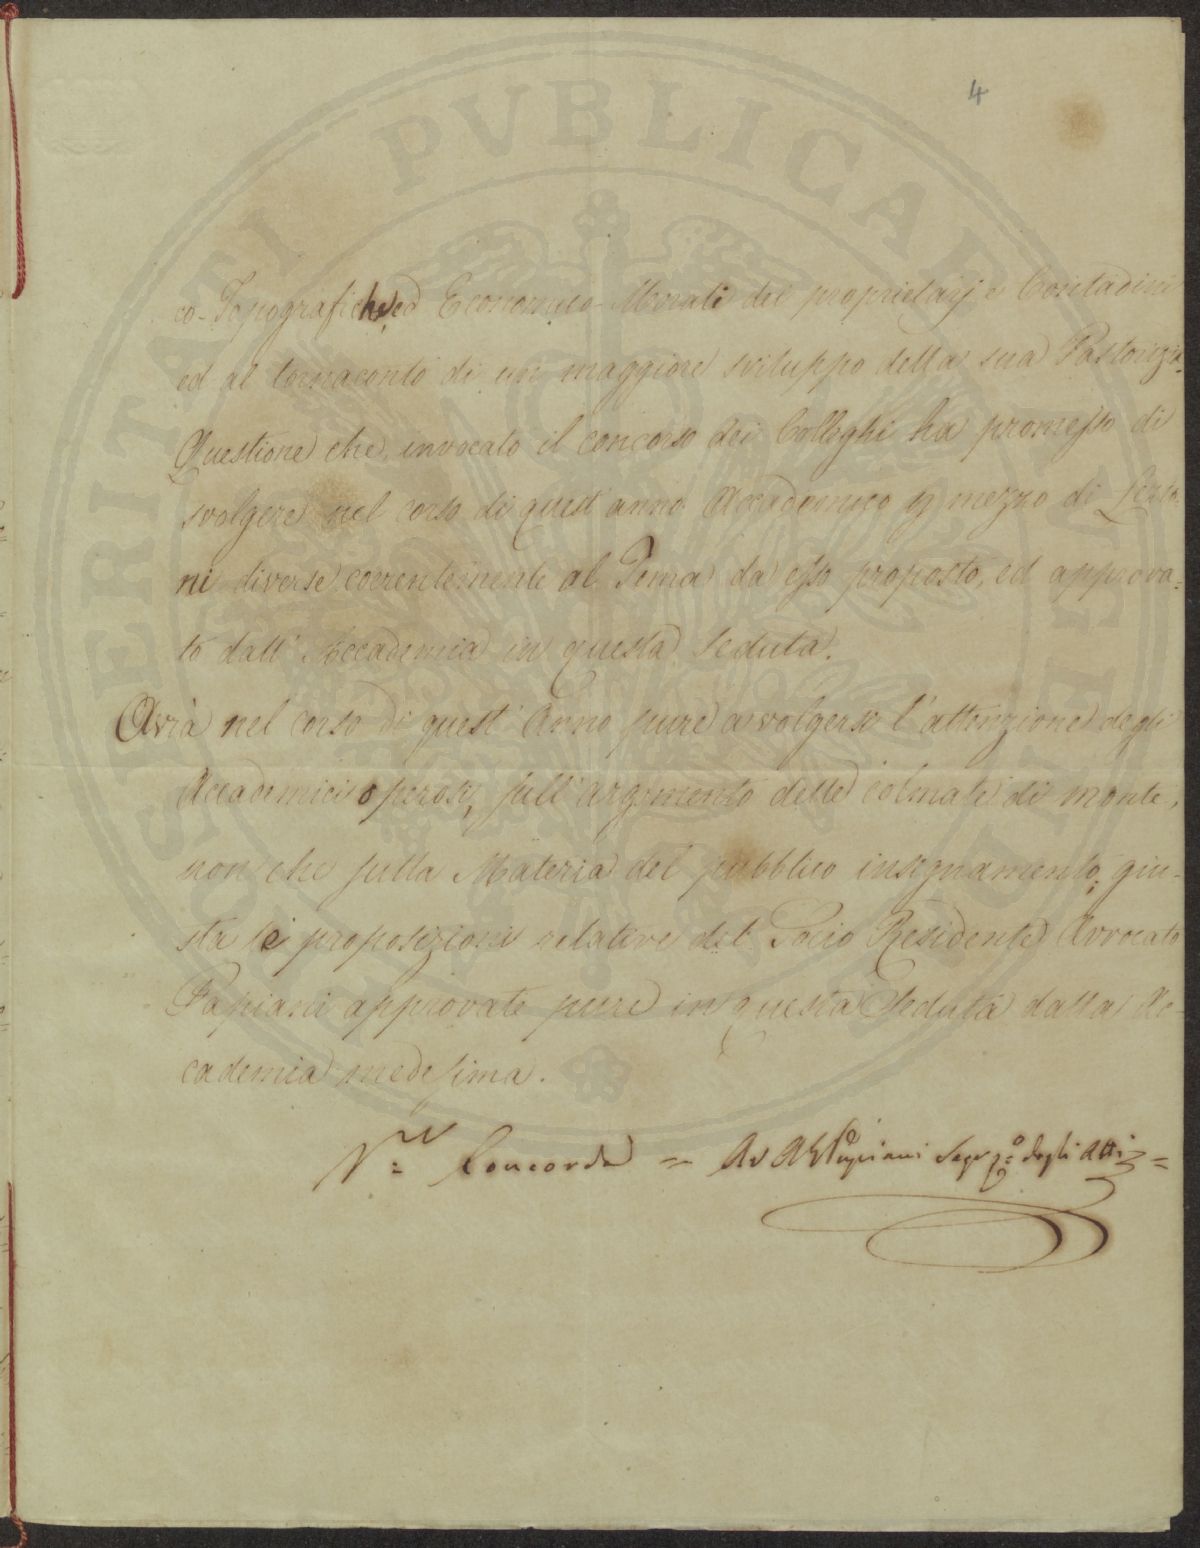 4
co-Topografiche, ed Economico-Morali dei proprietarj e Contadini
ed al tornaconto di un maggiore sviluppo della sua Pastorizia.
Questione che, invocato il concorso dei Colleghi ha promesso di
svolgere nel corso di quest'anno Accademico per mezzo di Lezio-
ni diverse coerentemente al Tema da esso proposto, ed approva-
to dall'Accademia in questa Seduta.
Avrà nel corso di quest'Anno pure a volgersi l'attenzione degli
Accademici operosi, sull'argomento delle colmate di monte,
non che sulla Materia del pubblico insegnamento, giu-
sta le proposizioni relative del Socio Residente Avvocato
Papiani approvate pure in questa Seduta dalla Ac-
cademia medesima.
Concorda = Av Papiani Segr.º degli Atti =
SERITATI PVBLICAE